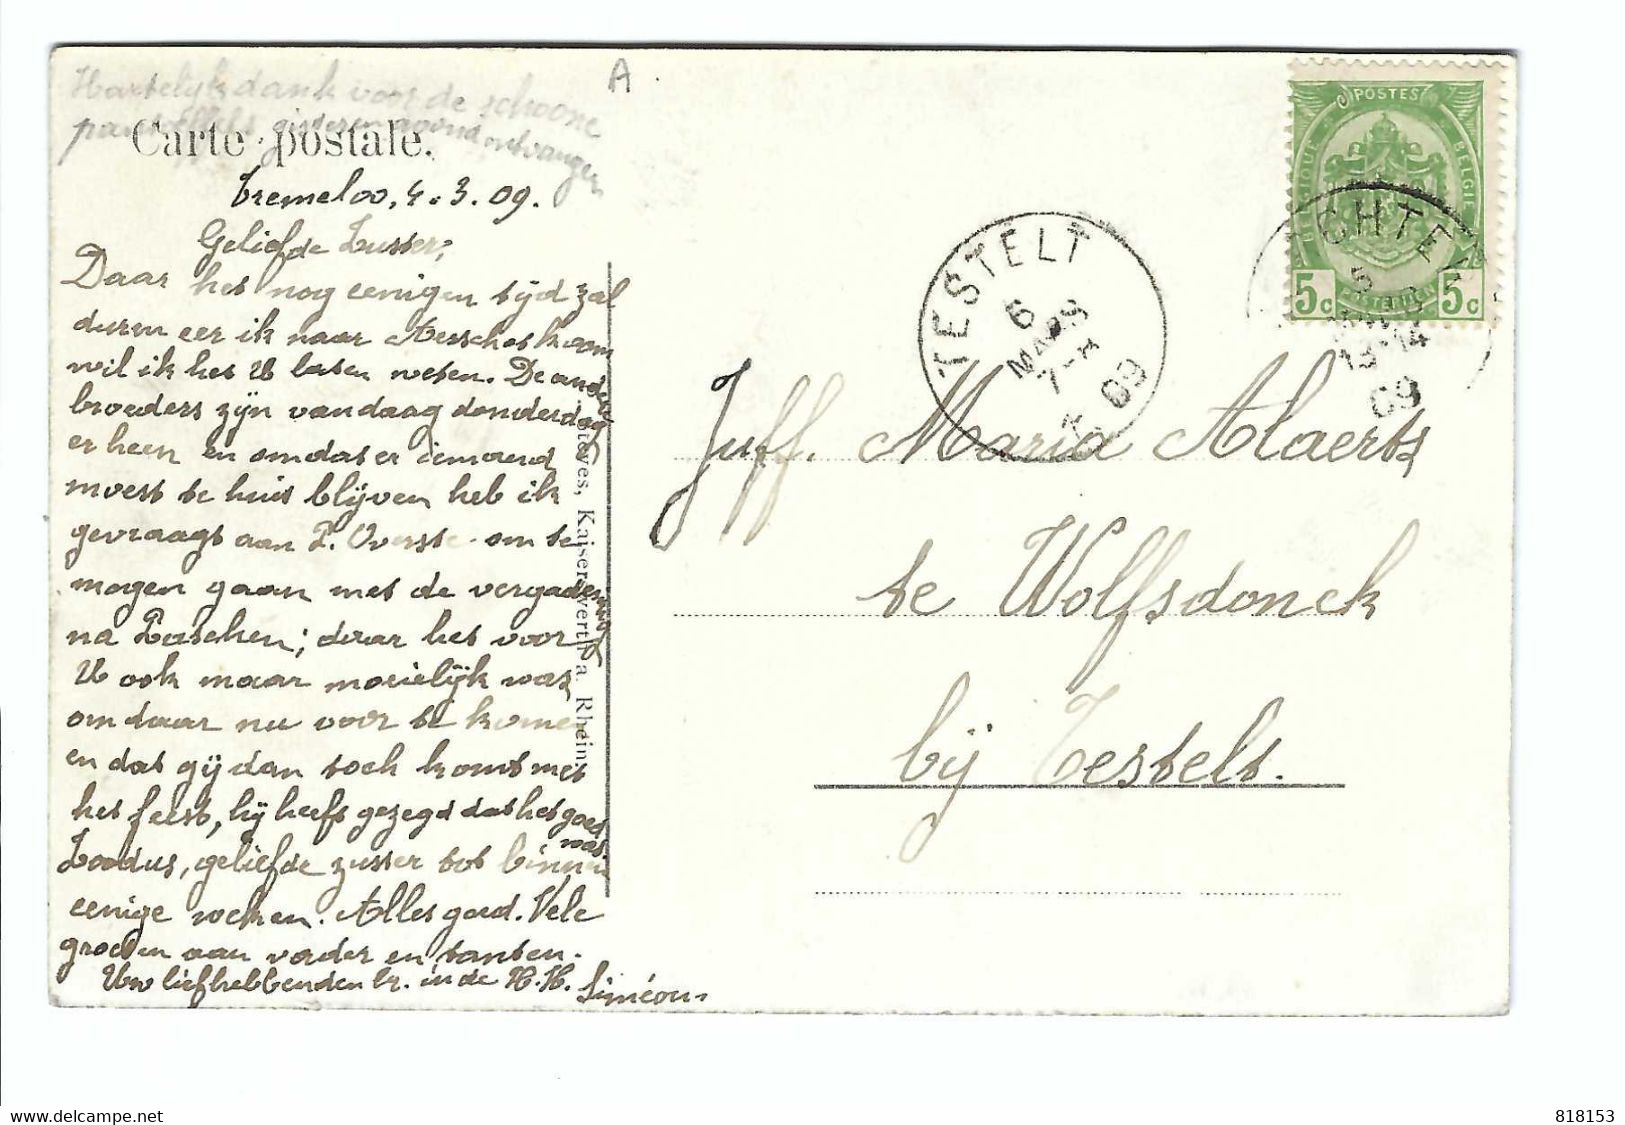 Hartelijk dank voor de schoone
pantoffels gisteren avond ontvangen
A
Carte postale.
Tremeloo, 4.3.09.
Geliefde Zuster,
Daar het nog eenigen tijd zal
duren eer ik naar Aerschot kom
wil ik het U laten weten. De andere
broeders zijn vandaag donderdag
er heen en omdat er iemand
moest te huis blijven heb ik
gevraagt aan P. Overste om te
mogen gaan met de vergadering
na Paschen; daar het voor
U ook maar moeielijk was
om daar nu voor te komen
en dat gij dan toch komt met
het feest, hij heeft gezegd dat het goed
was.
Zoodus, geliefde zuster tot binnen
eenige weken. Alles goed. Vele
groeten aan vader en tanten.
Uw liefhebbenden br. in de H.H. Siméon.
Kaiserswerth a. Rhein
POSTES
BELGIQUE
BELGIE
5c
POSTERIJEN
5c
TESTELT
6
MARS
7-8
09
CHTE
5
13-14
09
Juff. Maria Alaerts
te Wolfsdonck
bij Testelt.
www.delcampe.net
818153